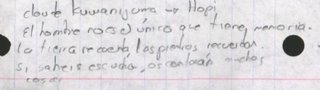 claude Kuwanijuma → Hopi
El hombre no es el único que tiene memoria.
la tierra recuerda, las piedras recuerdan.
Si sabeis escuchar, os contarán muchas
cosas